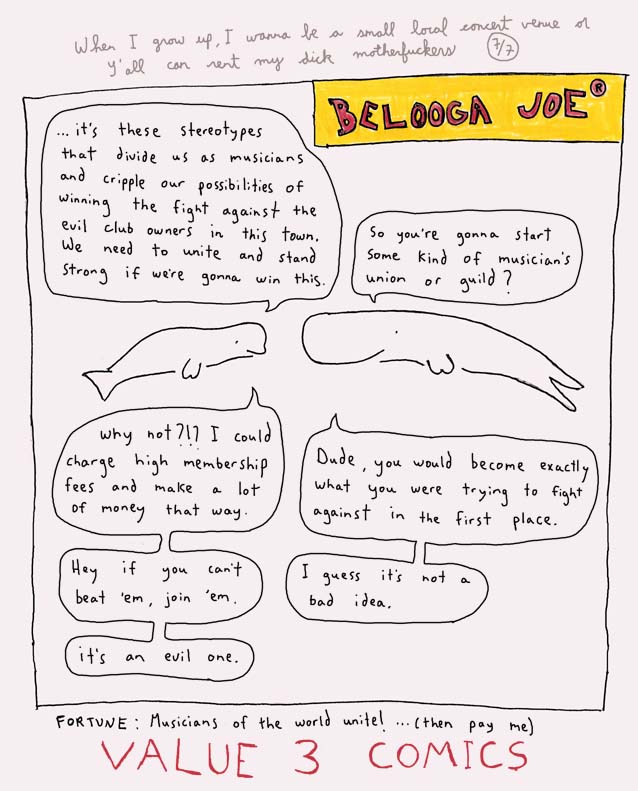 When I grow up, I wanna be a small local concert venue or
y'all can rent my dick motherfuckers 7/7
BELOOGA JOE ®
...it's these stereotypes
that divide us as musicians
and cripple our possibilities of
winning the fight against the
evil club owners in this town.
We need to unite and stand
strong if we're gonna win this.
So you're gonna start
some kind of musician's
union or guild?
Why not?!? I could
charge high membership
fees and make a lot
of money that way.
Dude, you would become exactly
what you were trying to fight
against in the first place.
Hey if you can't
beat 'em, join 'em.
I guess it's not a
bad idea.
it's an evil one.
FORTUNE: Musicians of the world unite! ...(then pay me)
VALUE 3 COMICS